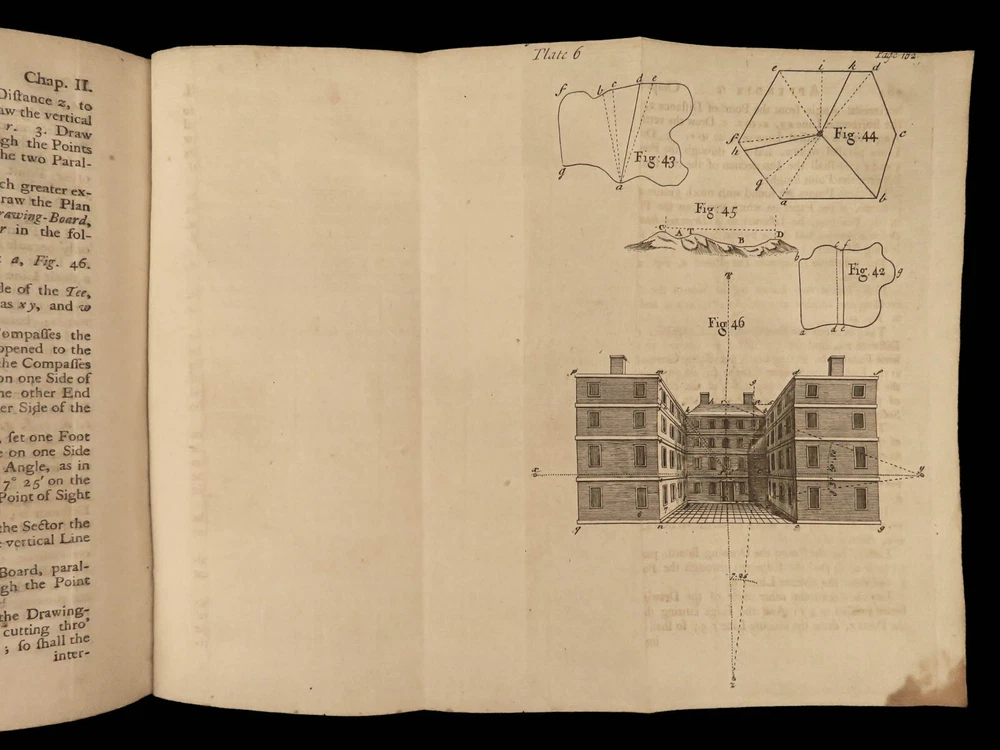 Chap. II.
Diſtance z, to
aw the vertical
r. 3. Draw
gh the Points
he two Paral-
ch greater ex-
raw the Plan
rawing-Board,
r in the fol-
a, Fig. 46.
le of the Tee,
as xy, and w
ompaſſes the
opened to the
he Compaſſes
on one Side of
he other End
er Side of the
, ſet one Foot
e on one Side
Angle, as in
7° 25′ on the
Point of Sight
the Sector the
e vertical Line
Board, paral-
gh the Point
the Drawing-
cutting thro'
; ſo ſhall the
inter-
Plate 6
Page 152
f b c d e
Fig: 43
g a
e i k d
f Fig: 44 c
h
g
a b
Fig 45
C A T B D
b c f
Fig. 42 g
a d e
Fig 46
x y
q n e g
7.25
z